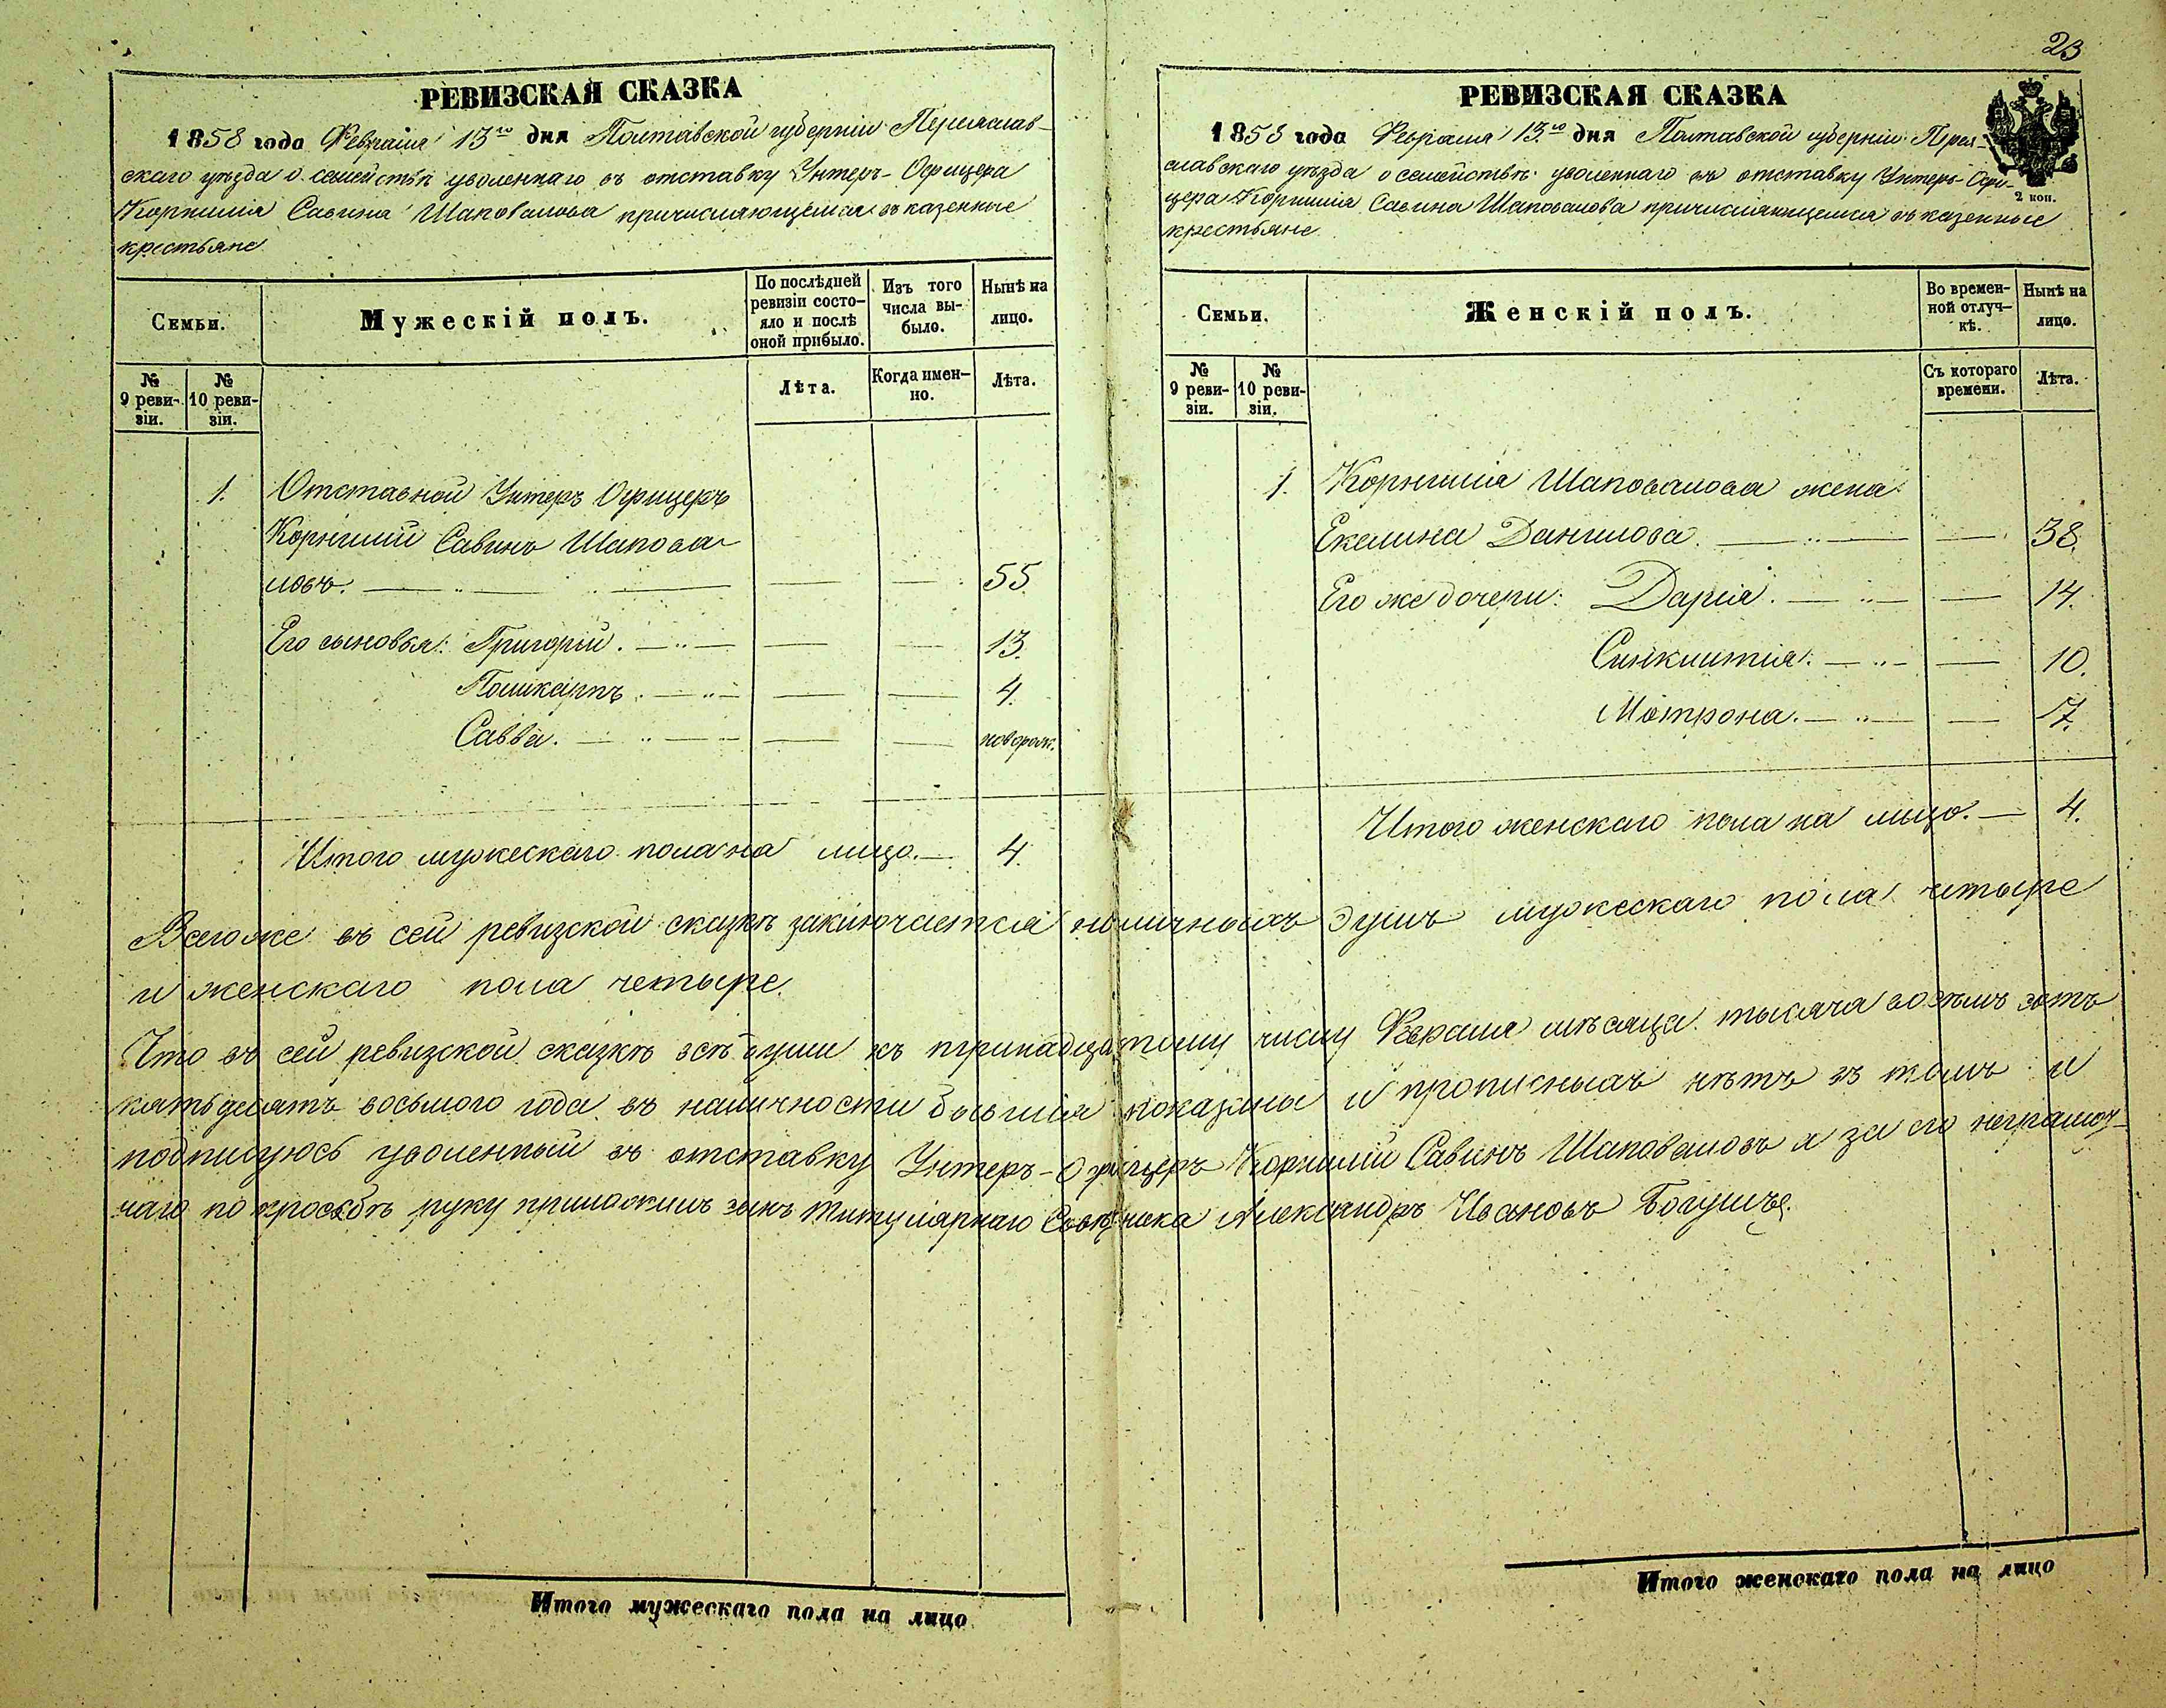 23
РЕВИЗСКАЯ СКАЗКА
1858 года Февраля 13го дня Полтавской губерніи Переяслав-
скаго уѣзда о семействѣ уволеннаго въ отставку Унтеръ-Офицера
Корнилія Савина Шаповалова причисляющемся въ казенные
крестьяне
Семьи.
Мужескій полъ.
По послѣдней ревизіи состояло и послѣ оной прибыло.
Изъ того числа выбыло.
Нынѣ на лицо.
№ 9 ревизіи.
№ 10 ревизіи.
Лѣта.
Когда именно.
Лѣта.
1. Отставной Унтеръ Офицеръ
Корнилій Савинъ Шапова-
ловъ. 55.
Его сыновья: Григорій. 13.
Поликарпъ. 4.
Савва. поворож.
Итого мужескаго пола на лицо. 4.
РЕВИЗСКАЯ СКАЗКА
2 коп.
1858 года Февраля 13го дня Полтавской губерніи Перея-
славскаго уѣзда о семействѣ уволеннаго въ отставку Унтеръ-Офи-
цера Корнилія Савина Шаповалова причисляющемся въ казенные
крестьяне
Семьи.
Женскій полъ.
Во временной отлучкѣ.
Нынѣ на лицо.
№ 9 ревизіи.
№ 10 ревизіи.
Съ котораго времени.
Лѣта.
1. Корнилія Шаповалова жена
Екалина Данилова. 38.
Его же дочери: Дарія. 14.
Синклитія. 10.
Мотрона. 7.
Итого женскаго пола на лицо. 4.
Всего же въ сей ревизской сказкѣ заключается наличныхъ душъ мужескаго пола четыре
и женскаго пола четыре.
Что въ сей ревизской сказкѣ всѣ души къ тринадцатому числу Февраля мѣсяца тысяча восемь сотъ
пятьдесятъ восьмого года въ наличности бывшія показаны и прописныхъ нѣтъ въ томъ и
подписуюсь уволенный въ отставку Унтеръ-Офицеръ Корнилій Савинъ Шаповаловъ а за его неграмот-
наго по просьбѣ руку приложилъ сынъ Титулярнаго Совѣтника Александръ Ивановъ Богушъ.
Итого мужескаго пола на лицо
Итого женскаго пола на лицо